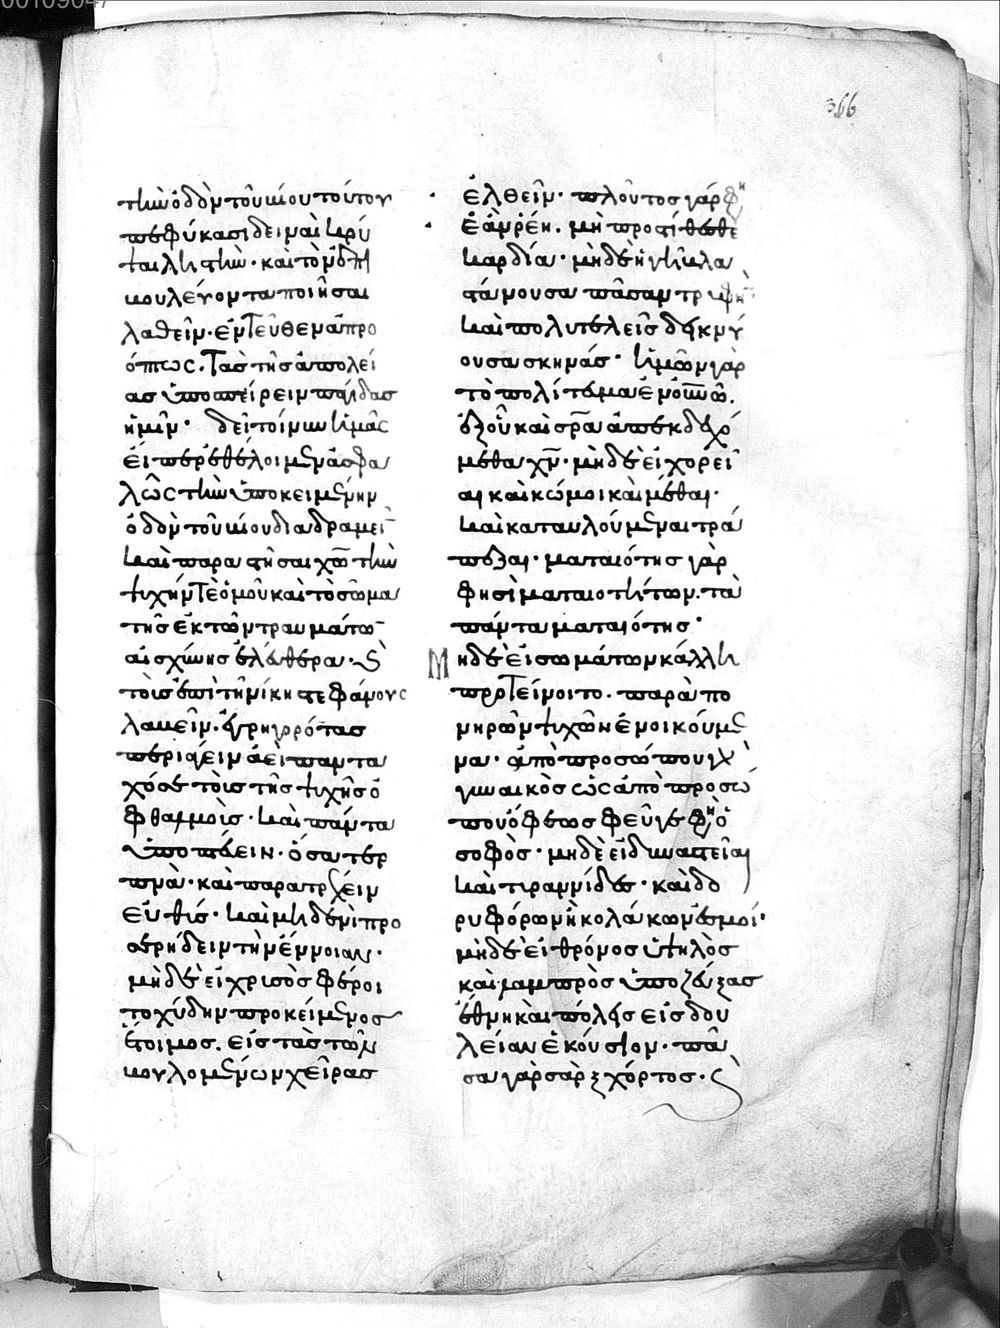 00109047
366
τὴν ὁδὸν τοῦ βίου τούτου
πεφύκασι δειναὶ κρύ
ται λῃστῶν· καὶ τὸν δ
βουλεύοντα ποιῆσαι
λαθεῖν· ἐντεῦθεν ἀπρο
όπτως. τὰς τῆς ἀπολεί
ας ὑποσπείρειν παγίδας
ἡμῖν· δεῖ τοίνυν ἡμᾶς
εἴπερ ἐθέλοιμεν ἀσφα
λῶς τὴν ὑποκειμένην
ὁδὸν τοῦ βίου διαδραμεῖ
καὶ παραστῆσαι χῶ τὴν
ψυχήν τε ὁμοῦ καὶ τὸ σῶμα
τῆς ἐκ τῶν τραυμάτω
αἰσχύνης ἐλεύθερα· καὶ
τοὺς ἐπὶ τῇ νίκῃ στεφάνους
λαβεῖν. ἐγρηγορότας
περιάγειν ἀεὶ πανταχόσε τοὺς τῆς ψυχῆς ὀ
φθαλμούς· καὶ πάντα
ὑποπτεύειν. ὅσα τερ
πνά· καὶ παρατρέχειν
εὐθύς· καὶ μηδενὶ προ
σερείδειν τὴν ἔννοιαν·
μηδὲ εἰ χρυσὸς φέροι
το χύδην προκείμενος
ἕτοιμος. εἰς τὰς τῶν
βουλομένων χεῖρας
ἐλθεῖν· πλοῦτος γάρ φη
ἐὰν ῥέῃ. μὴ προστίθεσθε
καρδίαν· μηδὲ ἡ γῆ βλα
στάνουσα πᾶσαν τρυφὴ
καὶ πολυτελεῖς δεικνύ
ουσα σκηνάς· ἡμῶν γὰρ
τὸ πολίτευμα ἐν οὐνω.
ἐξ οὗ καὶ σρα ἀπεκδεχό
μεθα χν· μηδὲ εἰ χορεῖ
αι καὶ κῶμοι καὶ μέθαι·
καὶ καταυλούμεναι τρά
πεζαι· ματαιότης γάρ
φησὶ ματαιοτήτων. τὰ
πάντα ματαιότης·
Μηδὲ εἰ σωμάτων κάλλη
προτείνοιτο. παρὰ πο
νηρῶν ψυχῶν ἐνοικούμε
να· ἀπὸ προσώπου γὰ
γυναικὸς ὡς ἀπὸ προσώ
που ὄφεως φεῦγε φη ὁ
σοφός· μηδὲ εἰ δυναστεῖαι
καὶ τυραννίδες· καὶ δο
ρυφόρων ἢ κολάκων ἑσμοί·
μηδὲ εἰ θρόνος ὑψηλὸς
καὶ λαμπρὸς ὑποζεύξας
ἔθνη καὶ πόλεις εἰς δου
λείαν ἑκούσιον· πᾶ
σα γὰρ σὰρξ χόρτος· καὶ